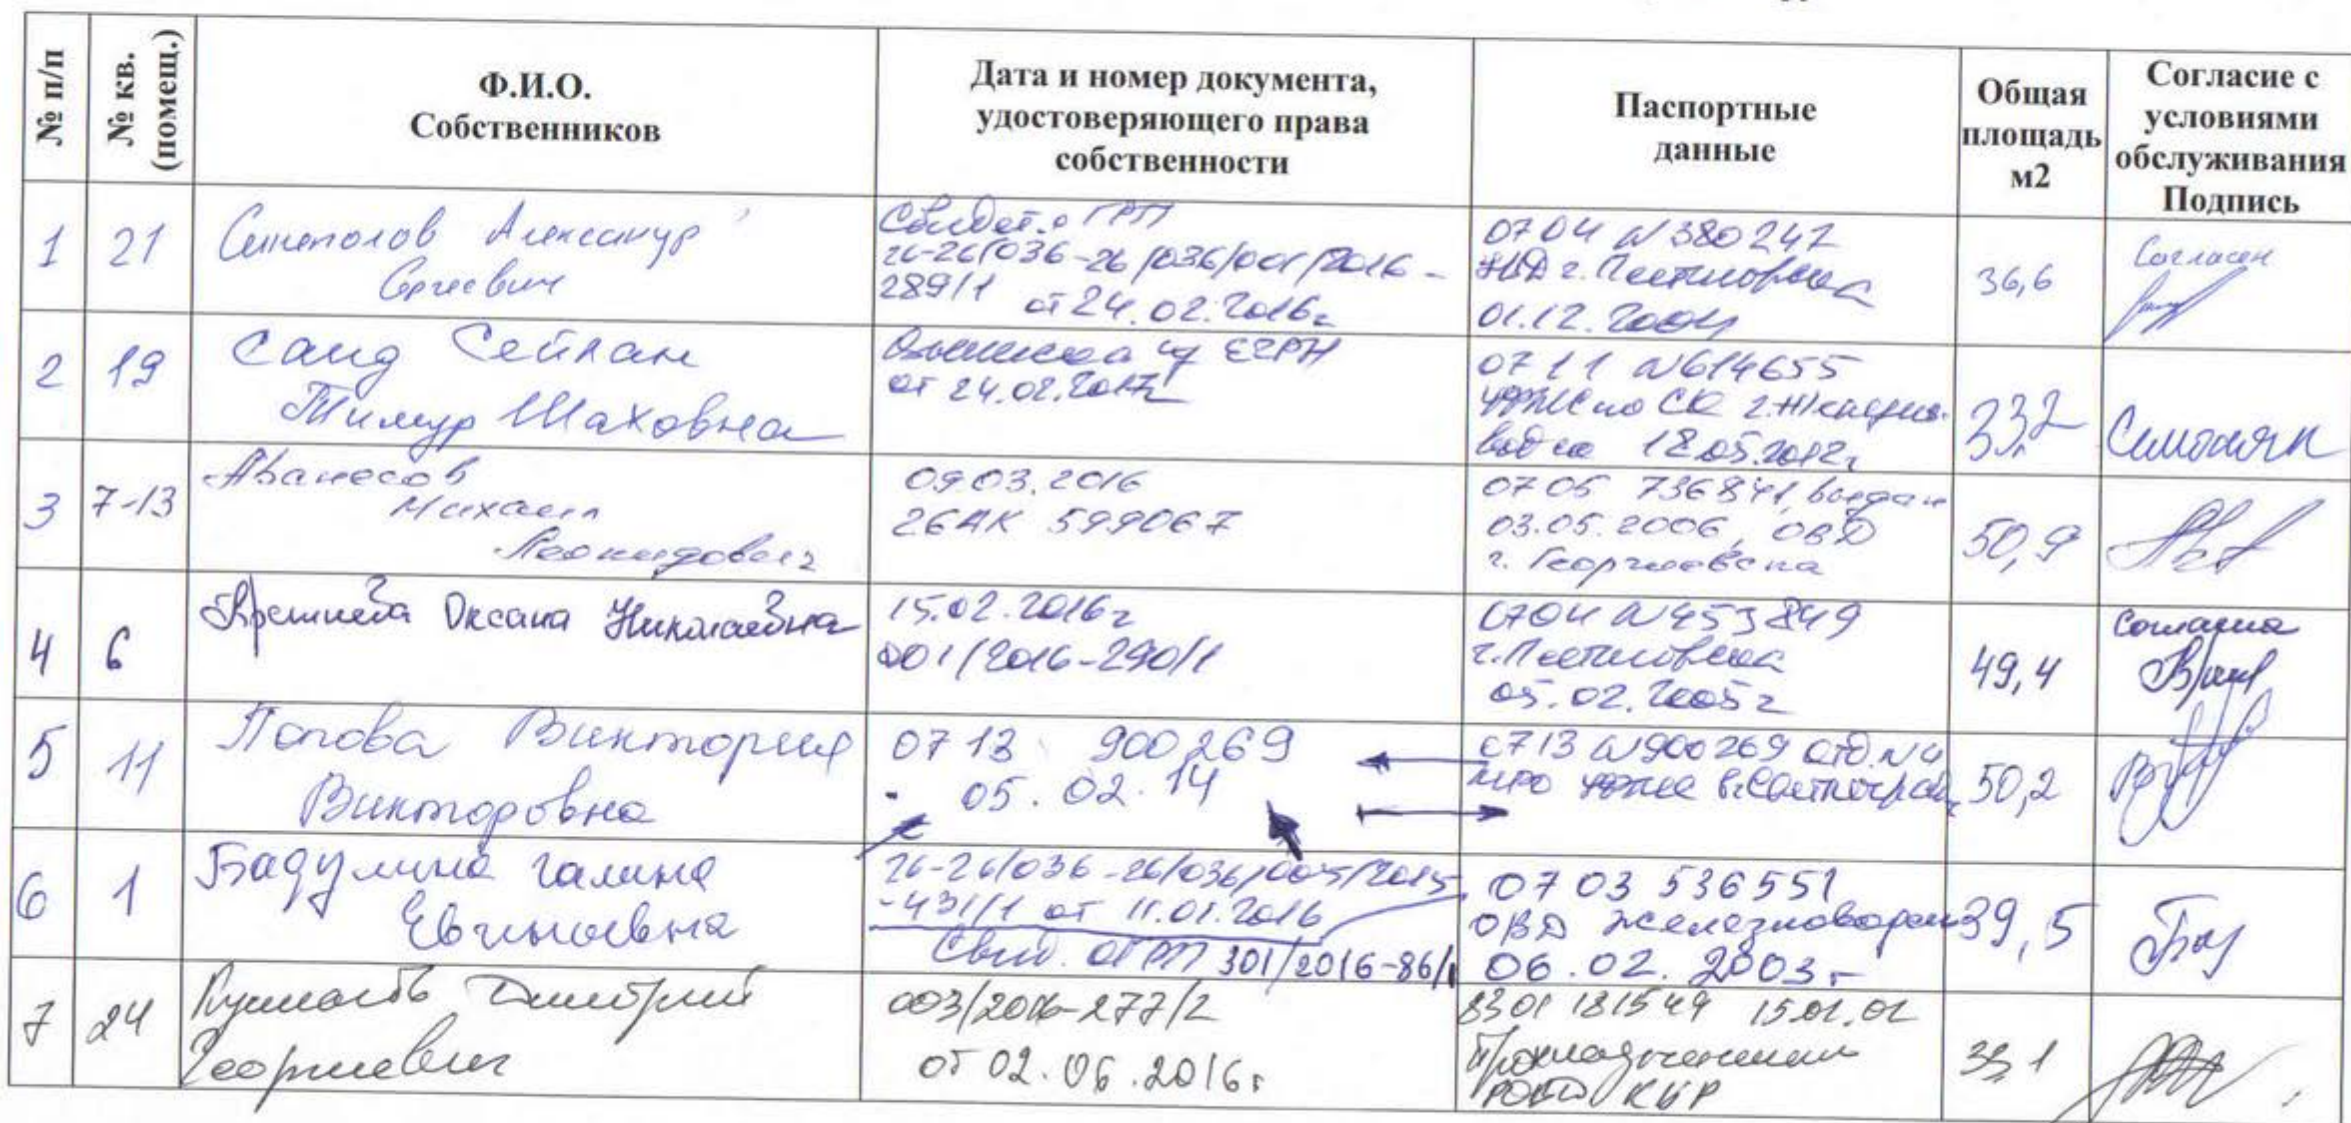 № п/п
№ кв. (помещ.)
Ф.И.О.
Собственников
Дата и номер документа,
удостоверяющего права
собственности
Паспортные
данные
Общая
площадь
м2
Согласие с
условиями
обслуживания
Подпись
1
21
Александр
Сергеевич
Свидет. о ГРП
26-26/036-26/036/001/2016-
289/1 от 24.02.2016г
0704 N 380247
01.12.2004
36,6
Согласен
2
19
Саид Сейран
Тимур Шаховна
Выписка из ЕГРН
от 24.02.2017г
0711 N614655
УФМС по СК г. Железно-
водске 18.05.2012г
33,2
3
7-13
Аванесов
Михаил
Леонидович
09.03.2016
26АК 599067
0705 736841, выдан
03.05.2006, ОВД
г. Георгиевска
50,9
4
6
Оксана Николаевна
15.02.2016г
001/2016-290/1
0704 N453849
05.02.2005г
49,4
Согласна
5
11
Попова Виктория
Викторовна
0713 900269
05.02.14
0713 N900269 отд. N4
МРО УФМС
50,2
6
1
Бадулина Галина
26-26/036-26/036/005/2015
-431/1 от 11.01.2016
Свид. о ГРП 301/2016-86/1
07 03 536551
ОВД Железноводска
06.02.2003г
39,5
7
24
Дмитрий
Георгиевич
003/2016-277/2
от 02.06.2016г
8301 181549 15.01.02
Прохладненским
РОВД КБР